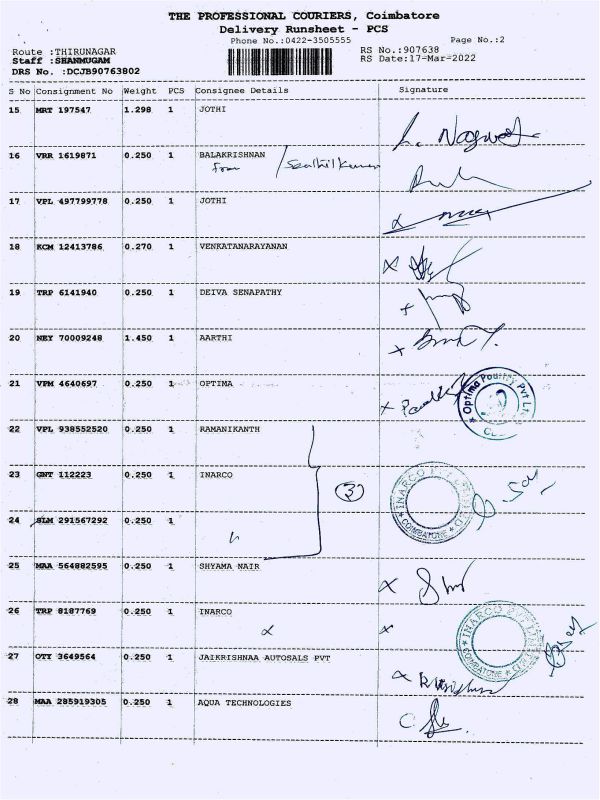 THE PROFESSIONAL COURIERS, Coimbatore
Delivery Runsheet - PCS
Phone No.:0422-3505555 Page No.:2
Route :THIRUNAGAR RS No.:907638
Staff :SHANMUGAM RS Date:17-Mar-2022
DRS No. :DCJB90763802
S No Consignment No Weight PCS Consignee Details Signature
15 MRT 197547 1.298 1 JOTHI
16 VRR 1619871 0.250 1 BALAKRISHNAN
from / Senthilkumar
17 VPL 497799778 0.250 1 JOTHI
18 KCM 12413786 0.270 1 VENKATANARAYANAN
19 TRP 6141940 0.250 1 DEIVA SENAPATHY
20 NEY 70009248 1.450 1 AARTHI
21 VPM 4640697 0.250 1 OPTIMA
Optima Poultry Pvt Lt
22 VPL 938552520 0.250 1 RAMANIKANTH
23 GNT 112223 0.250 1 INARCO
3
INARCO P
COIMBATORE
24 SLM 291567292 0.250 1
25 MAA 564882595 0.250 1 SHYAMA NAIR
26 TRP 8187769 0.250 1 INARCO
INARCO P
COIMBATORE
27 OTY 3649564 0.250 1 JAIKRISHNAA AUTOSALS PVT
28 MAA 285919305 0.250 1 AQUA TECHNOLOGIES